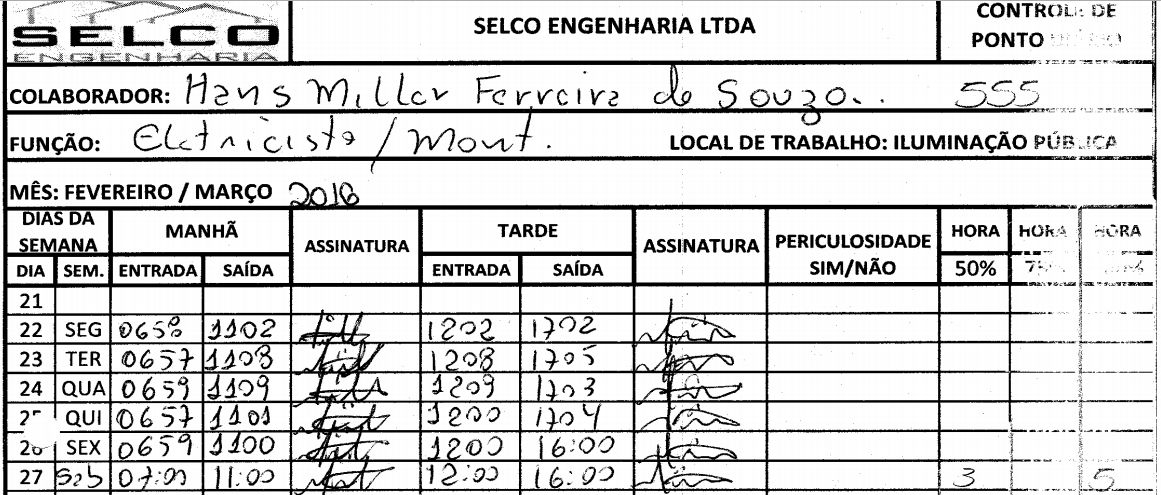 SELCO
ENGENHARIA
SELCO ENGENHARIA LTDA
CONTROLE DE
PONTO
COLABORADOR: Hans Miller Ferreira de Souza.. 555
FUNÇÃO: Eletricista / Mont. LOCAL DE TRABALHO: ILUMINAÇÃO PÚBLICA
MÊS: FEVEREIRO / MARÇO 2016
DIAS DA SEMANA MANHÃ ASSINATURA TARDE ASSINATURA PERICULOSIDADE SIM/NÃO HORA HORA HORA
DIA SEM. ENTRADA SAÍDA ENTRADA SAÍDA 50%
21
22 SEG 0658 1102 1202 1702
23 TER 0657 1108 1208 1705
24 QUA 0659 1109 1209 1703
QUI 0657 1101 1200 1704
SEX 0659 1100 1200 16:00
27 Sab 07:00 11:00 12:00 16:00 3 5